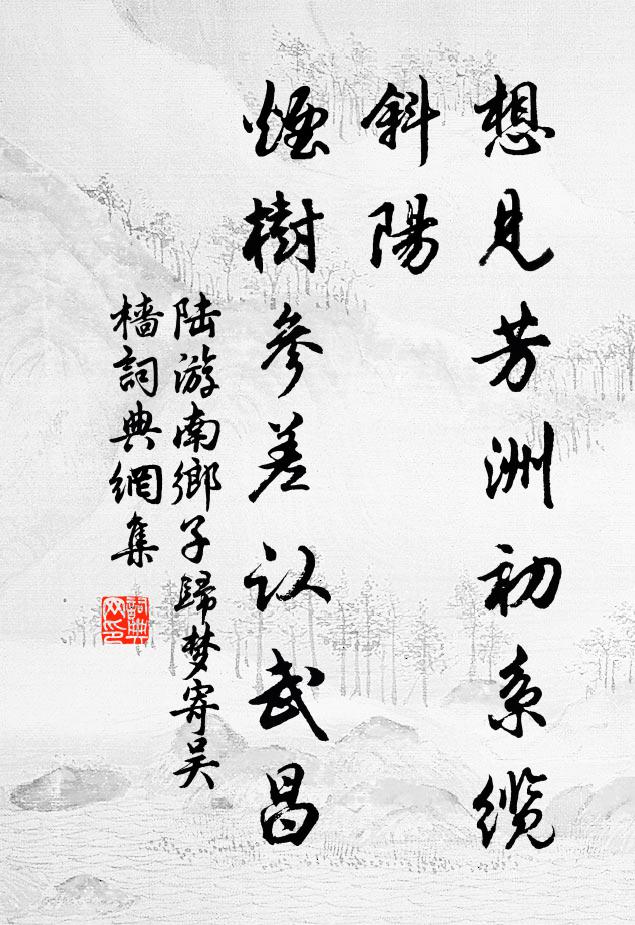 想見芳洲初系纜
斜陽
煙樹參差认武昌
陆游南鄉子歸梦寄吴
檣詞典網集
詞典網印